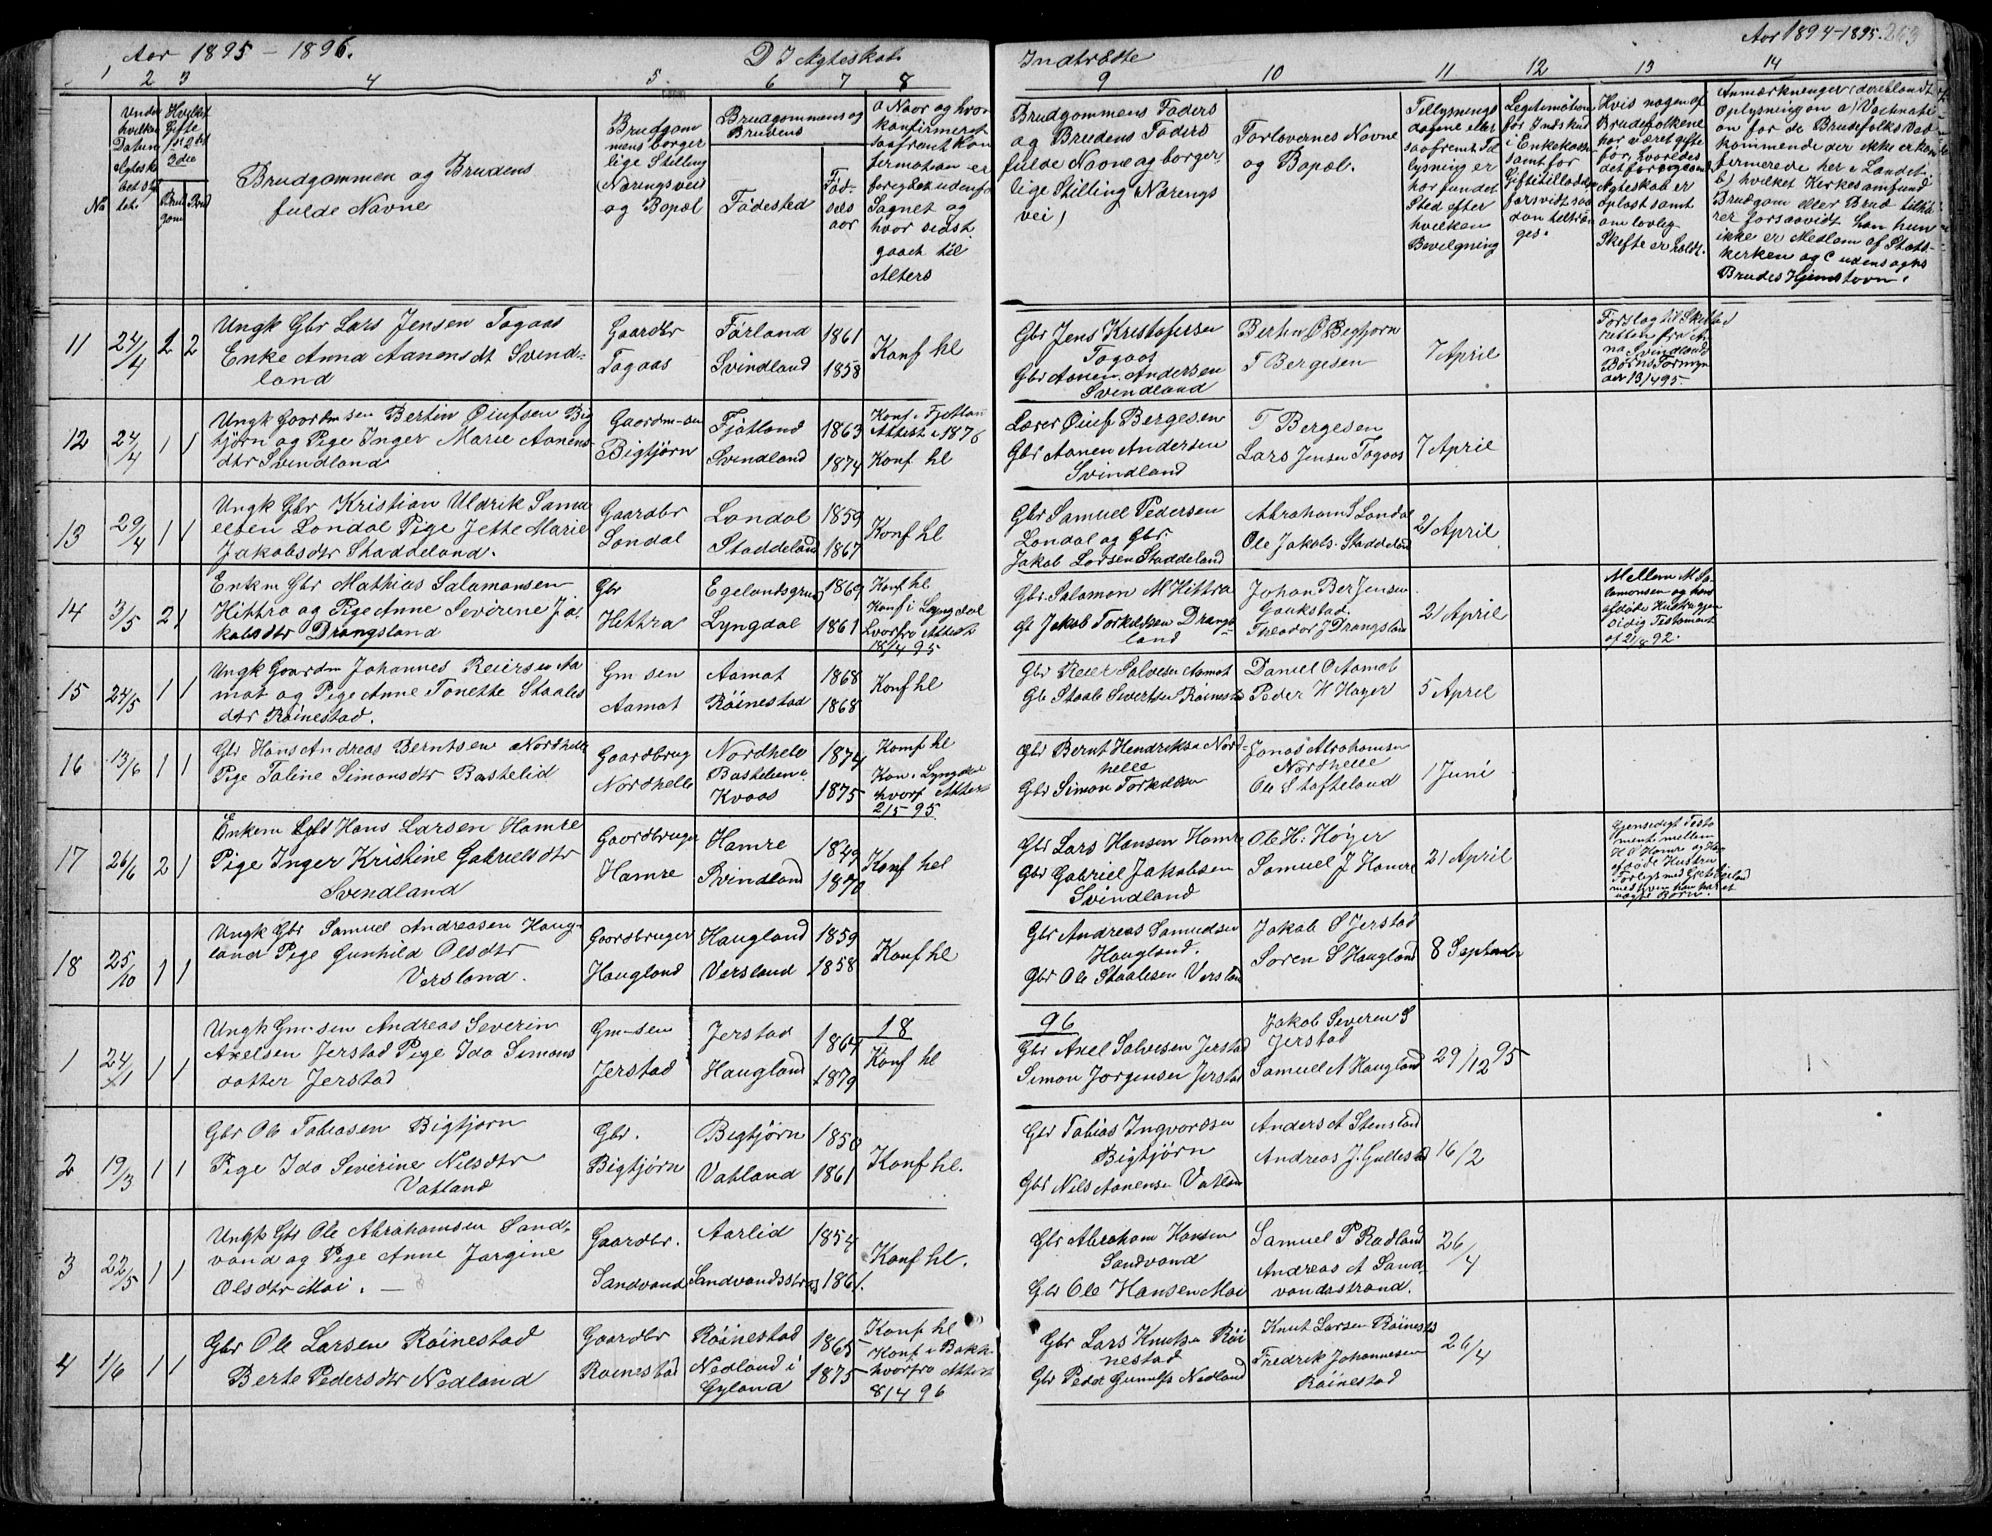 Aar 1895 - 1896.
D I Ægteskab
Indtrædte
Aar 1894-1895. 263
1 2 3 4 5 6 7 8 9 10 11 12 13 14
No
Under hvilken Datum Ægteskabet st
Hvilket Gifte 1ste 2det 3die
Brudgom Brud
Brudgommen og Brudens
fulde Navne
Brudgommens borgerlige Stilling
(Næringsvei
og Bopæl
Brudgommens og
Brudens
Fødested
Fødselsaar
a Naar og hvor
konfirmeret
saafremt kon
firmation er
foregaaet udenfor
Sognet og
hvor sidst
gaaet til
Alters
Brudgommens Faders
og Brudens Faders
fulde Navne og borger,
lige Stilling (Nærings
vei)
Forlovernes Navne
og Bopæl.
Tillysnings
dagene eller
saafremt Til
lysning ei
har fundet
Sted efter
hvilken
Bevilgning
Legitimation
for Indskud
i Enkekassen
samt for
Giftetilladelse
forsvidt saa
dan tiltræn
ges.
Hvis nogen af
Brudefolkene
har været gifte
før, hvorledes
det forrige
Ægteskab er
opløst samt
om lovlig
Skifte er holdt.
Anmærkninger (deriblandt
Oplysning om a) Vaccinati
on for de Brudefolks Ved
kommende der ikke er kon
firmerede her i Landet.
b) hvilket Kirkesamfund
Brudgom eller Brud tilhø
rer forsaavidt han hun
ikke er Medlem af Stats
kirken og c udensogns
Brudes Hjemstavn.
11 24/4 2 2
Ungk Gbr Lars Jensen Togaas
Enke Anna Aanensdt Svind=
land
Gaardbr
Togaas
Førland 1861
Svindland 1858
Konf hl
Gbr Jens Kristofersen
Togaas
Gbr Aanen Andersen
Svindland
Bertin O Bigtjørn
T Bergesen
7 April
Forslag til Skifte
Børns Formyn
12 24/4 1 1
Ungk Gaardm sen Bertin Øiufsen Big
tjørn og Pige Inger Marie Aanens-
dtr Svindland
Gaardm-sen
Bigtjørn
Fjotland 1863
Svindland 1874
Konf i Fjotland
Attest i 1876
Konf hl
Lærer Øiuf Bergesen
Gbr Aanen Andersen
Svindland
T Bergesen
Lars Jensen Togaas
7 April
13 29/4 1 1
Ungk Gbr Kristian Uldrik Samu
elsen Londal Pige Jette Marie
Jakobsdtr Staddeland.
Gaardbr
Londal
Londal 1859
Staddeland 1867
Konf hl
Gbr Samuel Pedersen
Londal og Gbr.
Jakob Larsen Staddeland
Abraham S Londal
Ole Jakobs. Staddeland
21 April
14 3/5 2 1
Enkm Gbr Mathias Salamonsen
Hittra og Pige Anne Severine Ja-
kobsdtr Drangsland
Gbr
Hettra
Egelandsgrund 1869
Lyngdal 1861
Konf hl
Konf i Lyngdal
hvorfra Attest
18/4 95
Gbr Salamon M Hittra
Gb Jakob Torkildsen Drangs=
land
Johan Ber Jensen
Gaukstad.
Theodor J Drangsland
21 April
Mellem M Sa
lamonsen og hans
afdøde Hustru gjen
sidig Testament
15 24/5 1 1
Ungk Gaardm Johannes Reiersen Aa
mot og Pige Anne Tonette Staales
dtr Røinestad.
Gm sen
Aamot
Aamot 1868
Røinestad 1868
Konf hl
Gbr Reier Salvesen Aamot
Gbr Staale Sivertsen Røinestad
Daniel O Aamot
Peder H Høyer
5 April
16 13/6 1 1
Gbr Hans Andreas Berntsen Nordhelle
Pige Taline Simonsdtr Bastelid
Gaardbrug
Nordhelle
Nordhelle 1874
Bastelien i
Kvaas 1875
Konf hl
Kon i Lyngdal
hvorf Attest
2/5 95
Gbr Bernt Hendriksen Nord=
helle
Gbr Simon Torkildsen
Jonas Abrahamsen
Nordhelle
Ole S Stofteland
1 Juni
17 26/6 2 1
Enkem Gbr Hans Larsen Hamre
Pige Inger Kristine Gabrielsdtr
Svindland
Gaardbruger
Hamre
Hamre 1849
Svindland 1870
Konf hel
Gbr Lars Hansen Hamre
Gbr Gabriel Jakobsen
Svindland
Ole H. Høyer
Samuel J Hamre
21 April
Gjensidigt Testa
mente mellem
H L Hamre og
afdøde Hustru
18 25/10 1 1
Ungk Gbr Samuel Andreasen Haug-
land Pige Gunhild Olsdtr
Versland.
Gaardbruger
Haugland
Haugland 1859
Versland 1858
Konf hl
Gbr Andreas Samuelsen
Haugland.
Gbr Ole Staalesen Versland
Jakob S Jerstad
Søren S Haugland
8 September
18 96
1 24/1 1 1
Ungk Gm-sen Andreas Severin
Axelsen Jerstad Pige Ida Simons
datter Jerstad
Gm-sen
Jerstad
Jerstad 1864
Haugland 1879
Konf hl
Gbr Axel Salvesen Jerstad
Simon Jørgensen Jerstad
Jakob Severen S
Jerstad
Samuel A Haugland
29/12 95
2 19/3 1 1
Gbr Ole Tobiasen Bigtjørn
Pige Ida Severine Nilsdtr
Vatland
Gbr.
Bigtjørn
Bigtjørn 1850
Vatland 1861
Konf hl.
Gbr Tobias Ingvordsen
Bigtjørn
Gbr Nils Aanensen Vatland
Anders A Stensland
Andreas J. Gullestad
16/2
3 22/5 1 1
Ungk Gbr Ole Abrahamsen Sand-
vand og Pige Anne Jørgine
Olsdtr Moi. —
Gaardbr.
Sandvand
Aarlid 1854
Sandvandsstrand 1861.
Konf hl.
Gbr Abraham Hansen
Sandvand
Gbr Ole Hansen Moi
Samuel P Rødland
Andreas A Sand-
vandsstrand.
26/4
4 1/6 1 1
Gbr Ole Larsen Røinestad
Berte Pedersdtr Nedland
Gaardbr
Røinestad
Røinestad 1865
Nedland i
Gyland 1875
Konf hl
Konf i Bakke
hvorfra Attest
8/4 96
Gbr Lars Knutsen Røi
nestad
Gbr Peder Gunulfs Nedland
Knut Larsen Røinestad
Fredrik Johannesen
Røinestad
26/4